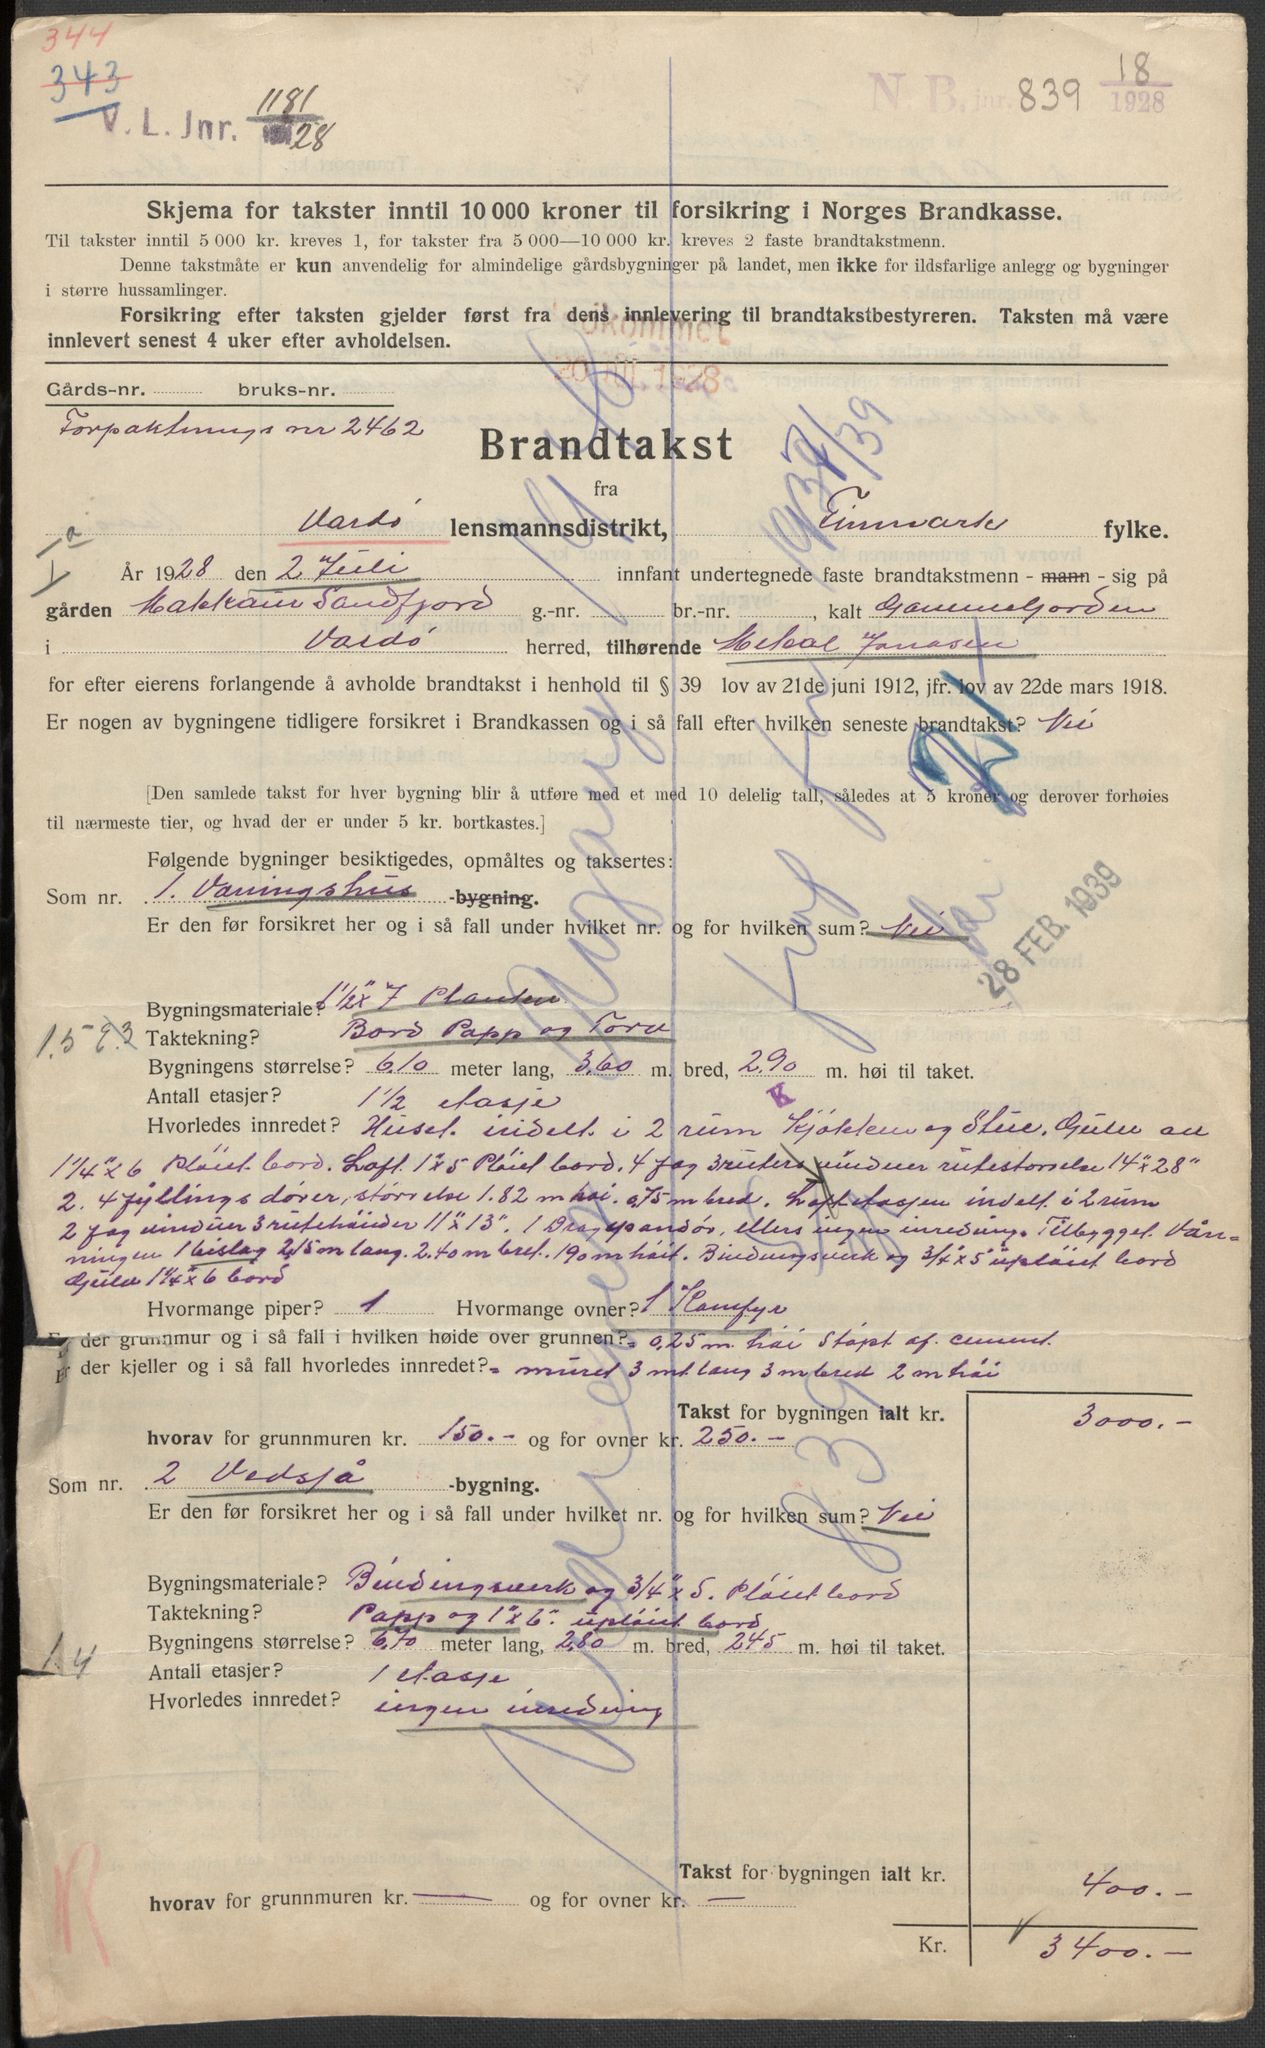 344
343
V. L. Jnr. 1181/28
N. B. jnr. 839 18/1928
Skjema for takster inntil 10 000 kroner til forsikring i Norges Brandkasse.
Til takster inntil 5 000 kr. kreves 1, for takster fra 5 000—10 000 kr. kreves 2 faste brandtakstmenn.
Denne takstmåte er kun anvendelig for almindelige gårdsbygninger på landet, men ikke for ildsfarlige anlegg og bygninger
i større hussamlinger.
Forsikring efter taksten gjelder først fra dens innlevering til brandtakstbestyreren. Taksten må være
innlevert senest 4 uker efter avholdelsen.
Gårds-nr. bruks-nr.
Forpaktnings nr 2462
Brandtakst
fra
Vardø lensmannsdistrikt, Finmark fylke.
År 1928 den 2 Juli innfant undertegnede faste brandtakstmenn - mann - sig på
gården Makkaur Sandfjord g.-nr. br.-nr. , kalt Gammelgorden
i Vardø herred, tilhørende Mekal Jonasen
for efter eierens forlangende å avholde brandtakst i henhold til § 39 lov av 21de juni 1912, jfr. lov av 22de mars 1918.
Er nogen av bygningene tidligere forsikret i Brandkassen og i så fall efter hvilken seneste brandtakst? Nei
[Den samlede takst for hver bygning blir å utføre med et med 10 delelig tall, således at 5 kroner og derover forhøies
til nærmeste tier, og hvad der er under 5 kr. bortkastes.]
Følgende bygninger besiktigedes, opmåltes og taksertes:
Som nr. 1. Vaningshus -bygning.
Er den før forsikret her og i så fall under hvilket nr. og for hvilken sum? Nei
28 FEB. 1939
Bygningsmateriale? 1½" x 7 Planker
Taktekning? Bord Papp og Torv
Bygningens størrelse? 6,10 meter lang, 3,60 m. bred, 2,90 m. høi til taket.
Antall etasjer? 1½ etasje
Hvorledes innredet? Huset indelt i 2 rum Kjøkken og Stue. Gulv av
1¼" x 6 Pløiet bord. Loft 1" x 5 Pløiet bord. 4 fag 3 ruters vinduer rutestorrelse 14" x 28"
2. 4 fyllings dører, størrelse 1.82 m høi. 0,75 m bred. Loft etasjen indelt i 2 rum
2 fag vinduer 3 rute 11" x 13". 1, ellers ingen inredning. Tilbygget Vån-
ningen 1 bislag 2,15 m lang. 2.40 m bret. 1.90 m høit. Bindingsverk og ¾" x 5" upløiet bord
Gulv 1¼" x 6 bord
Hvormange piper? 1 Hvormange ovner? 1 Komfyr
Er der grunnmur og i så fall i hvilken høide over grunnen? = 0,25 m. høi støpt af cement.
Er der kjeller og i så fall hvorledes innredet? = muret 3 mt. lang 3 m bred 2 m høi
Takst for bygningen ialt kr. 3000.-
hvorav for grunnmuren kr. 150.- og for ovner kr. 250.-
Som nr. 2 Vedsjå -bygning.
Er den før forsikret her og i så fall under hvilket nr. og for hvilken sum? Nei
Bygningsmateriale? Bindingsverk og 3/4" x 5. Pløiet bord
Taktekning? Papp og 1" x 6". upløiet bord
Bygningens størrelse? 6,70 meter lang, 2,80 m. bred, 2,45 m. høi til taket.
1.4
Antall etasjer? 1 etasje
Hvorledes innredet? ingen inredning
Takst for bygningen ialt kr. 400.-
hvorav for grunnmuren kr. — og for ovner kr. —
Kr. 3400.-
R